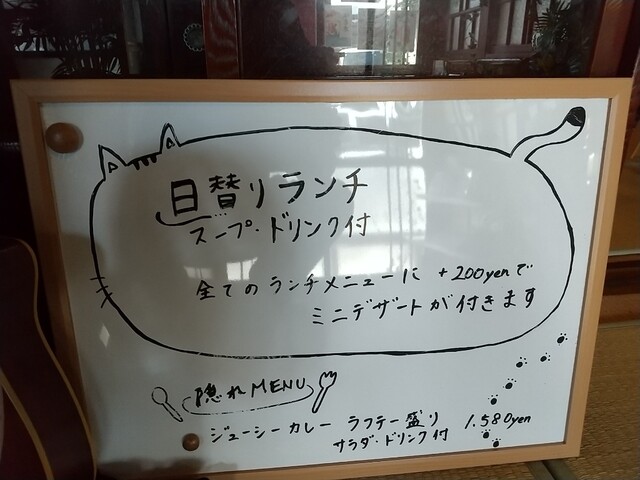 日替りランチ
スープ・ドリンク付
全てのランチメニューに +200yenで
ミニデザートが付きます
隠れMENU
ジューシーカレー ラフテー盛り 1.580yen
サラダ・ドリンク付